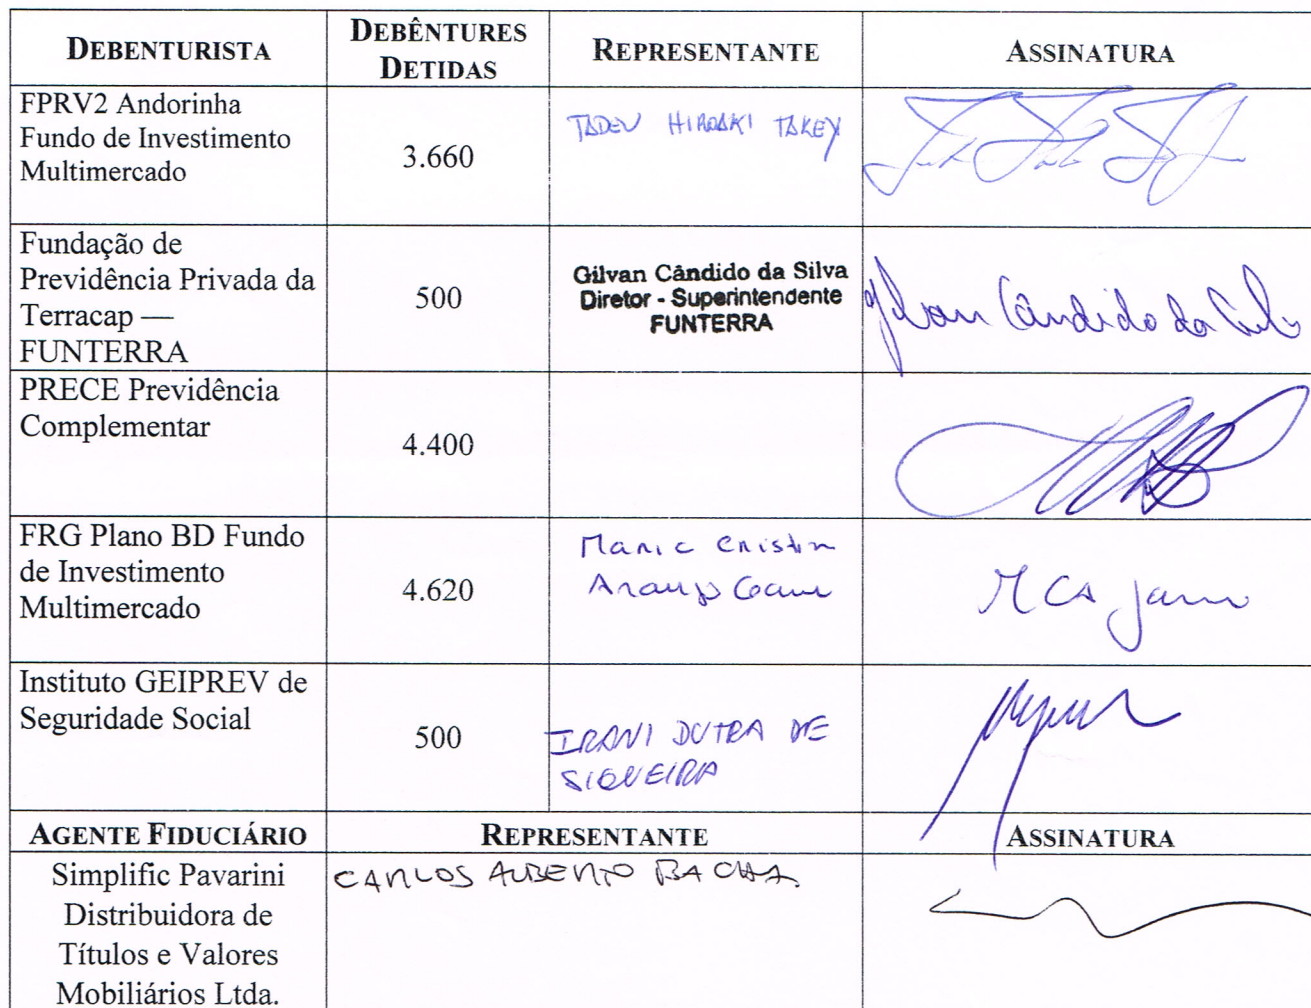 DEBENTURISTA
DEBÊNTURES
DETIDAS
REPRESENTANTE
ASSINATURA
FPRV2 Andorinha
Fundo de Investimento
Multimercado
3.660
TADEU HIROAKI TAKEY
Fundação de
Previdência Privada da
Terracap —
FUNTERRA
500
Gilvan Cândido da Silva
Diretor - Superintendente
FUNTERRA
Gilvan Cândido da Silva
PRECE Previdência
Complementar
4.400
FRG Plano BD Fundo
de Investimento
Multimercado
4.620
Araujo
MCA
Instituto GEIPREV de
Seguridade Social
500
IRANI DUTRA DE
SIQUEIRA
AGENTE FIDUCIÁRIO
REPRESENTANTE
ASSINATURA
Simplific Pavarini
Distribuidora de
Títulos e Valores
Mobiliários Ltda.
CARLOS ALBERTO BACHA